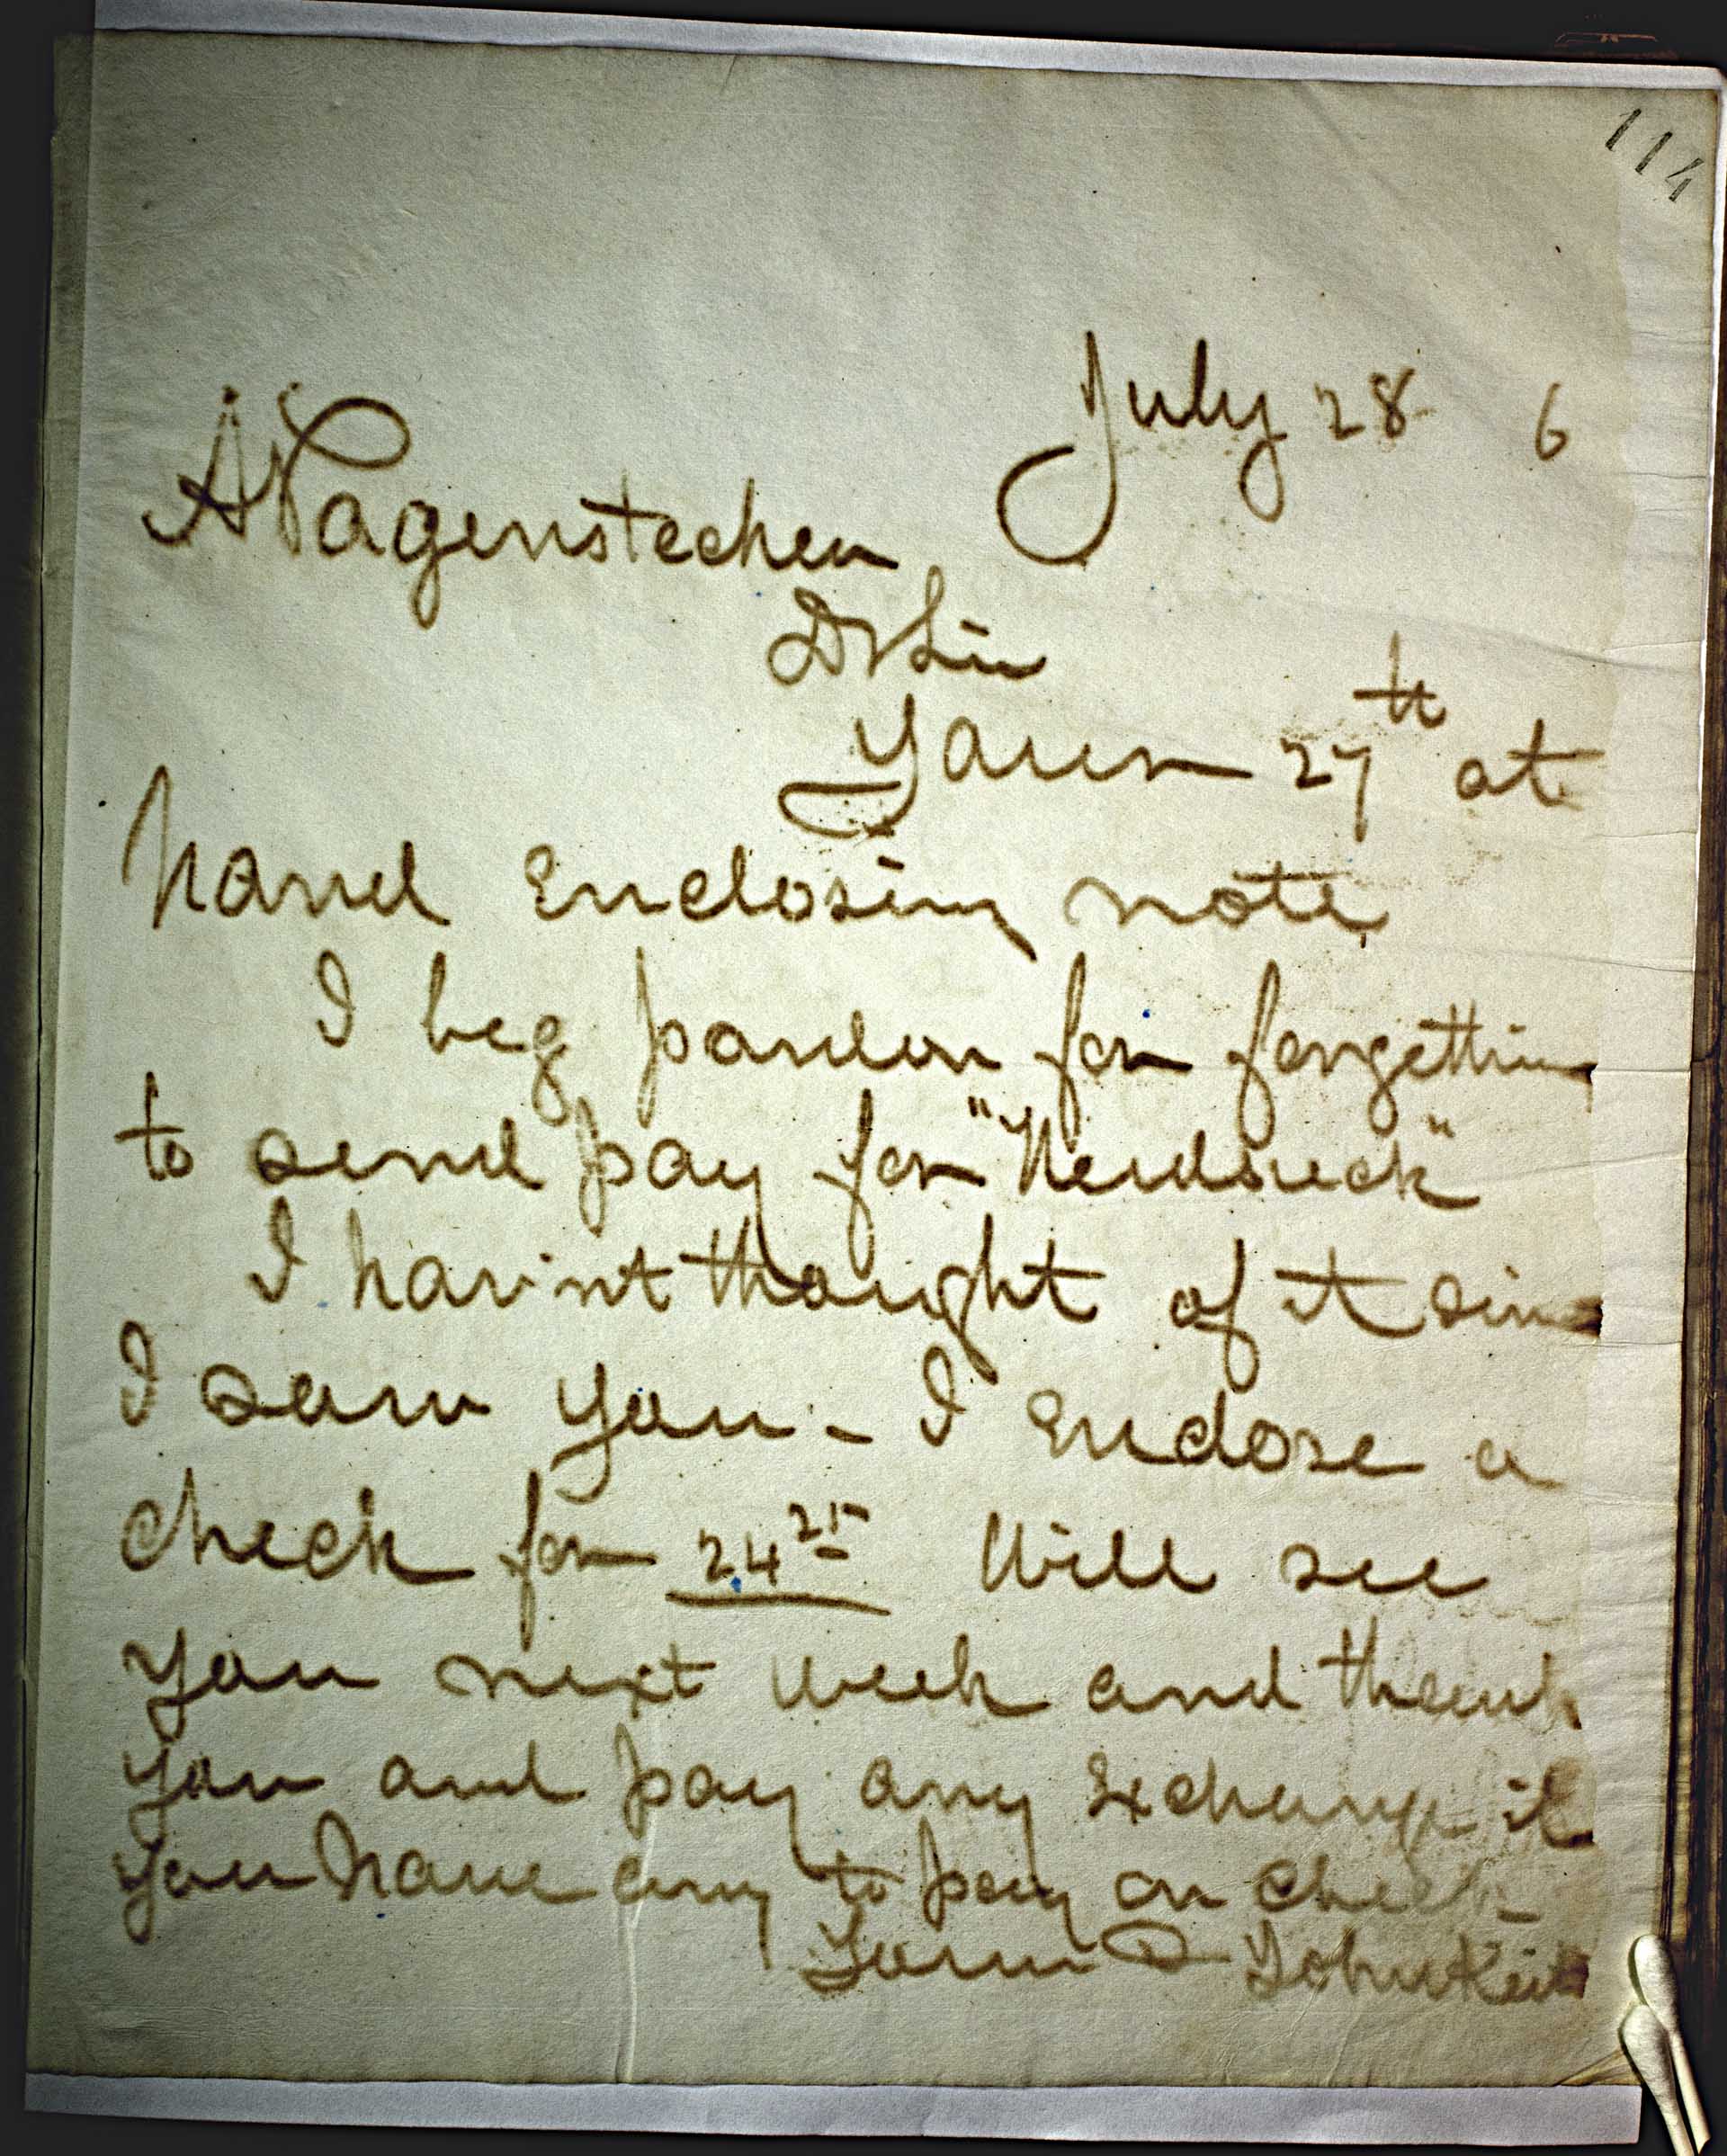 114
July 28 6
A Pagenstecher
Dr Sir
Yours 27th at
hand Enclosing note
I beg pardon for forgetting
to send pay for "Heidsieck"
I havint thought of it since
I saw you - I Enclose a
check for 24 25 Will see
you next week and thank
you and pay any Exchange if
you have any to pay on check
Yours John Keit